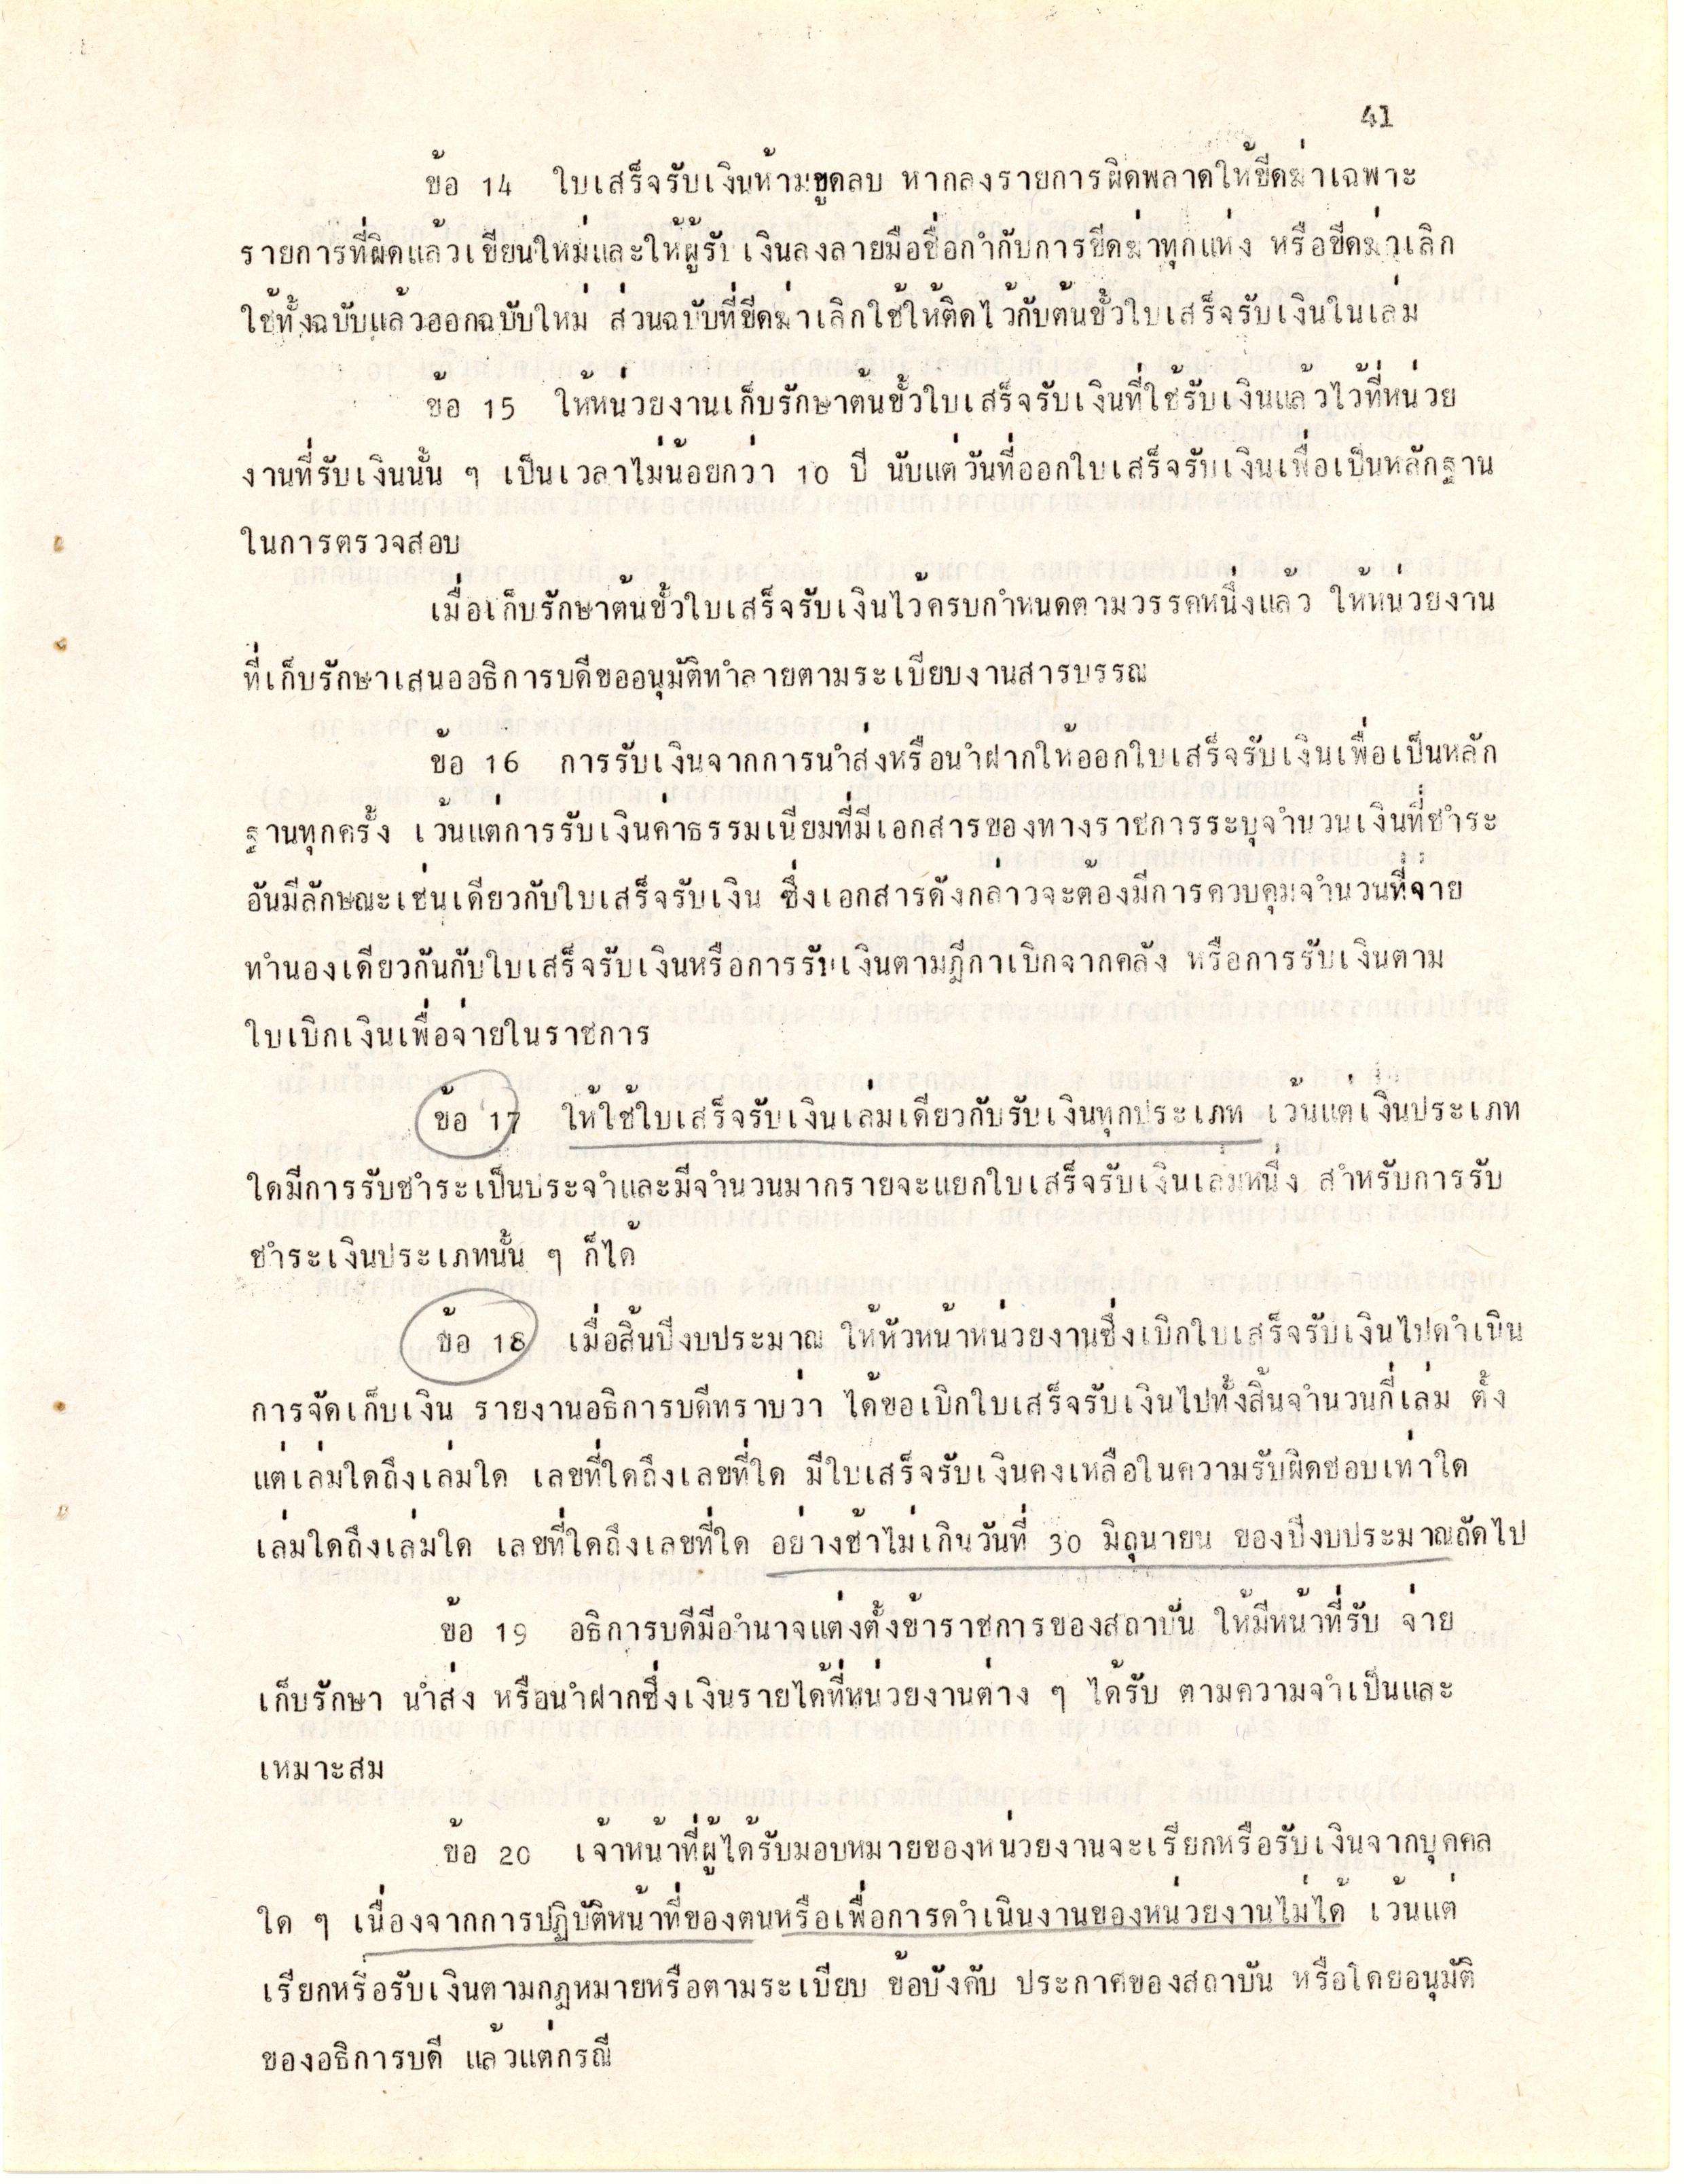 41
ข้อ 14 ใบเสร็จรับเงินห้ามขูดลบ หากลงรายการผิดพลาดให้ขีดฆ่าเฉพาะ
รายการที่ผิดแล้วเขียนใหม่และให้ผู้รับเงินลงลายมือชื่อกำกับการขีดฆ่าทุกแห่ง หรือขีดฆ่าเลิก
ใช้ทั้งฉบับแล้วออกฉบับใหม่ ส่วนฉบับที่ขีดฆ่าเลิกใช้ให้ติดไว้กับต้นขั้วใบเสร็จรับเงินในเล่ม
ข้อ 15 ให้หน่วยงานเก็บรักษาต้นขั้วใบเสร็จรับเงินที่ใช้รับเงินแล้วไว้ที่หน่วย
งานที่รับเงินนั้น ๆ เป็นเวลาไม่น้อยกว่า 10 ปี นับแต่วันที่ออกใบเสร็จรับเงินเพื่อเป็นหลักฐาน
ในการตรวจสอบ
เมื่อเก็บรักษาต้นขั้วใบเสร็จรับเงินไว้ครบกำหนดตามวรรคหนึ่งแล้ว ให้หน่วยงาน
ที่เก็บรักษาเสนออธิการบดีขออนุมัติทำลายตามระเบียบงานสารบรรณ
ข้อ 16 การรับเงินจากการนำส่งหรือนำฝากให้ออกใบเสร็จรับเงินเพื่อเป็นหลัก
ฐานทุกครั้ง เว้นแต่การรับเงินค่าธรรมเนียมที่มีเอกสารของทางราชการระบุจำนวนเงินที่ชำระ
อันมีลักษณะเช่นเดียวกับใบเสร็จรับเงิน ซึ่งเอกสารดังกล่าวจะต้องมีการควบคุมจำนวนที่จ่าย
ทำนองเดียวกันกับใบเสร็จรับเงินหรือการรับเงินตามฎีกาเบิกจากคลัง หรือการรับเงินตาม
ใบเบิกเงินเพื่อจ่ายในราชการ
ข้อ 17 ให้ใช้ใบเสร็จรับเงินเล่มเดียวกับรับเงินทุกประเภท เว้นแต่เงินประเภท
ใดมีการรับชำระเป็นประจำและมีจำนวนมากรายจะแยกใบเสร็จรับเงินเล่มหนึ่ง สำหรับการรับ
ชำระเงินประเภทนั้น ๆ ก็ได้
ข้อ 18 เมื่อสิ้นปีงบประมาณ ให้หัวหน้าหน่วยงานซึ่งเบิกใบเสร็จรับเงินไปดำเนิน
การจัดเก็บเงิน รายงานอธิการบดีทราบว่า ได้ขอเบิกใบเสร็จรับเงินไปทั้งสิ้นจำนวนกี่เล่ม ตั้ง
แต่เล่มใดถึงเล่มใด เลขที่ใดถึงเลขที่ใด มีใบเสร็จรับเงินคงเหลือในความรับผิดชอบเท่าใด
เล่มใดถึงเล่มใด เลขที่ใดถึงเลขที่ใด อย่างช้าไม่เกินวันที่ 30 มิถุนายน ของปีงบประมาณถัดไป
ข้อ 19 อธิการบดีมีอำนาจแต่งตั้งข้าราชการของสถาบัน ให้มีหน้าที่รับ จ่าย
เก็บรักษา นำส่ง หรือนำฝากซึ่งเงินรายได้ที่หน่วยงานต่าง ๆ ได้รับ ตามความจำเป็นและ
เหมาะสม
ข้อ 20 เจ้าหน้าที่ผู้ได้รับมอบหมายของหน่วยงานจะเรียกหรือรับเงินจากบุคคล
ใด ๆ เนื่องจากการปฏิบัติหน้าที่ของตนหรือเพื่อการดำเนินงานของหน่วยงานไม่ได้ เว้นแต่
เรียกหรือรับเงินตามกฎหมายหรือตามระเบียบ ข้อบังคับ ประกาศของสถาบัน หรือโดยอนุมัติ
ของอธิการบดี แล้วแต่กรณี